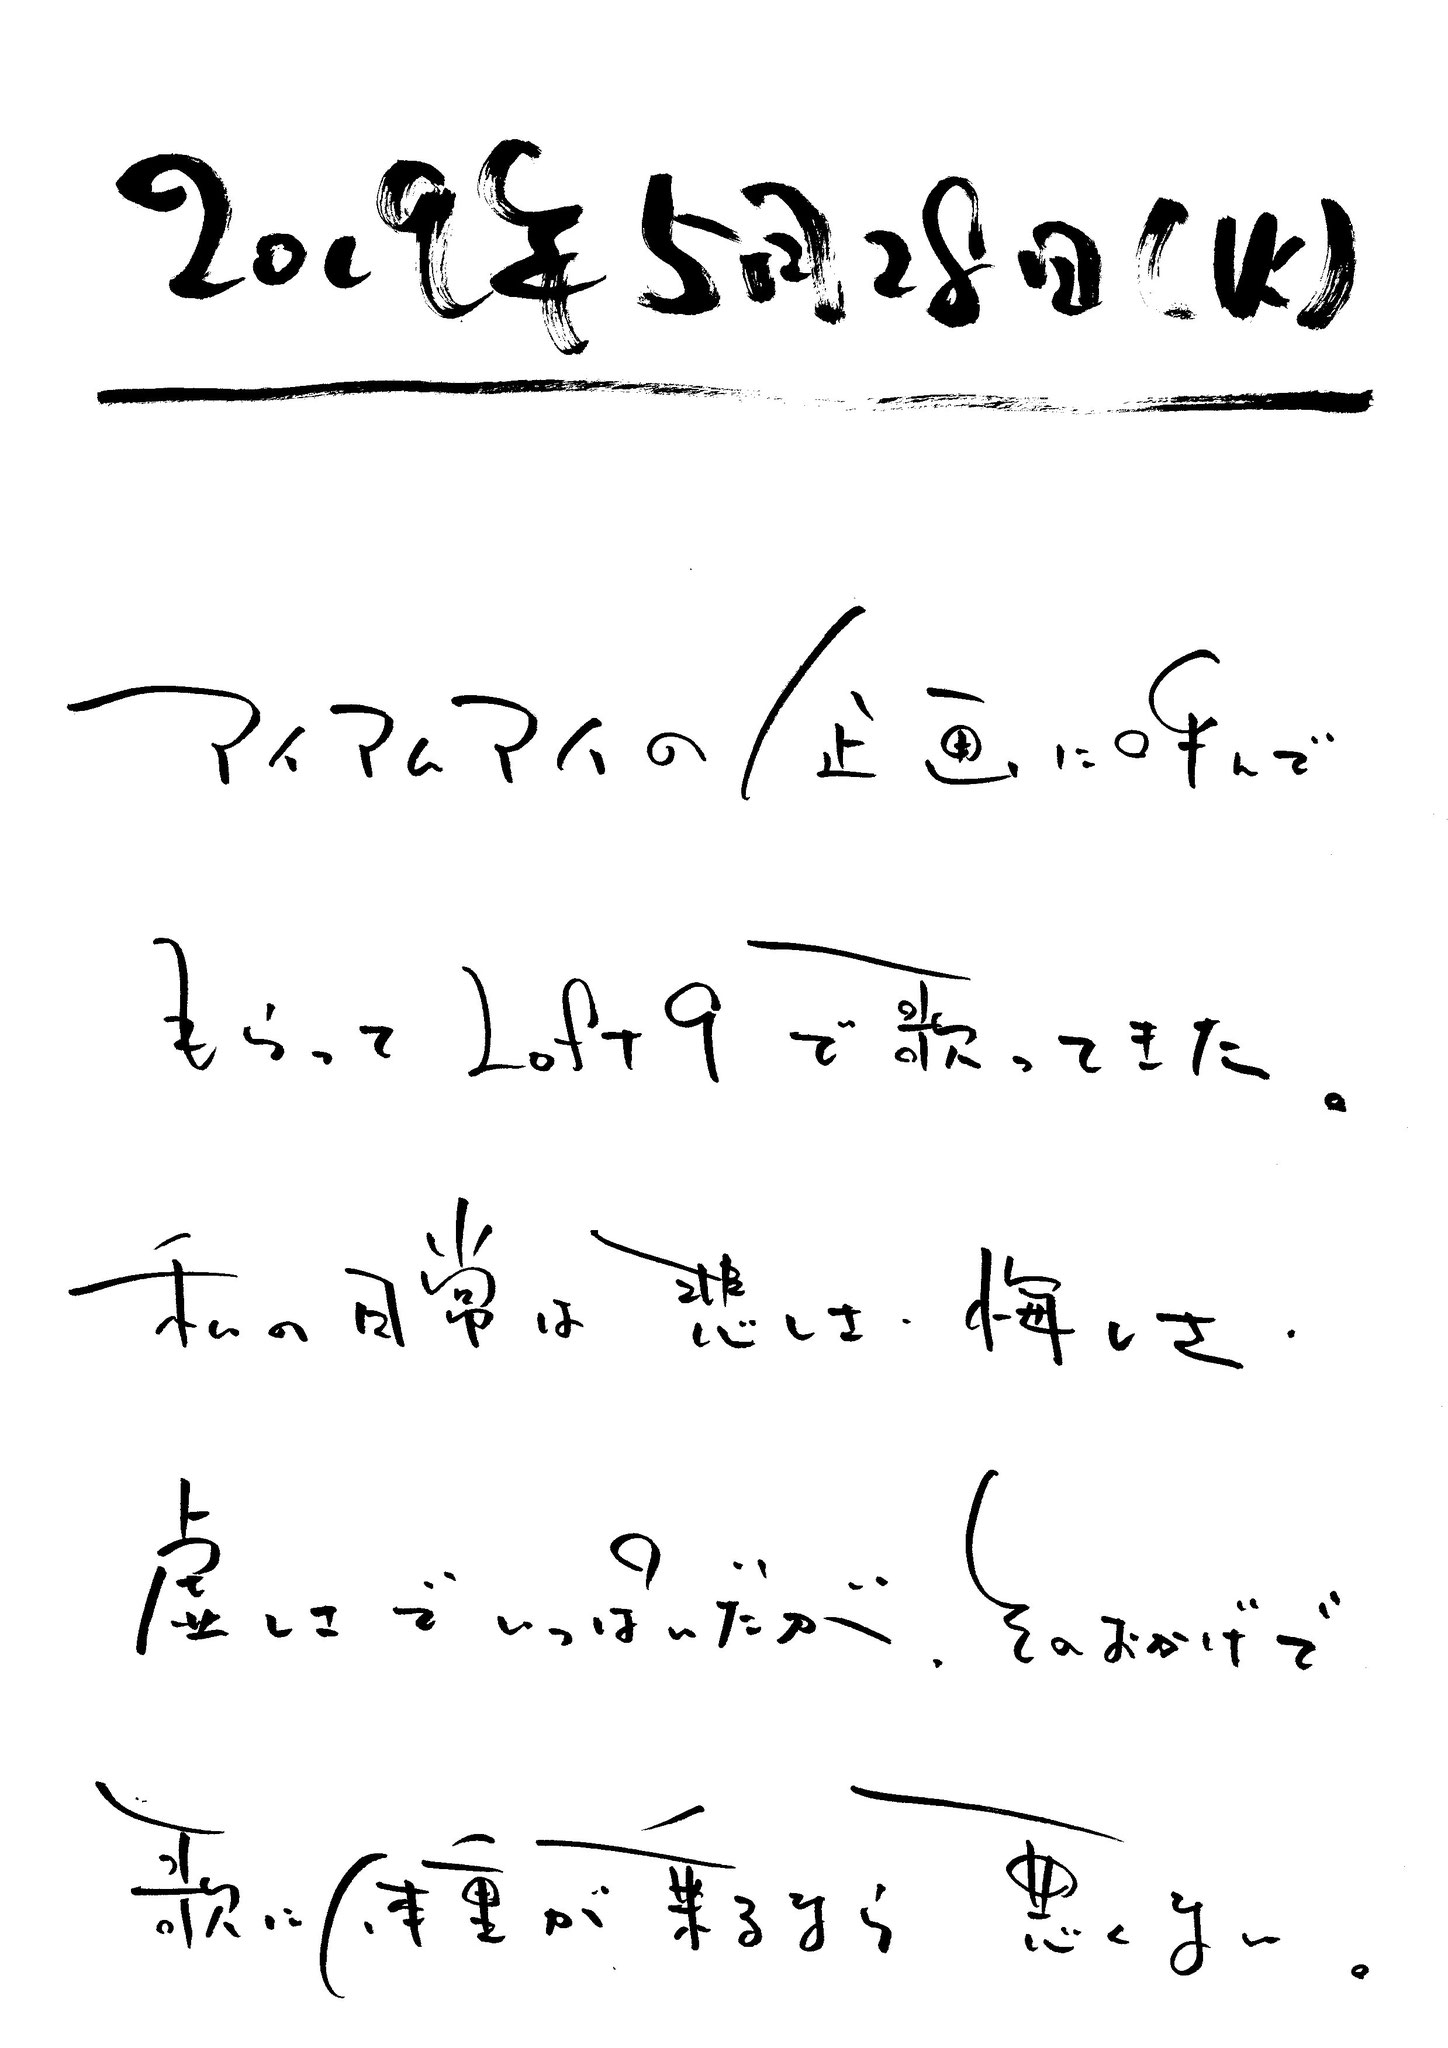 2019年5月28日(火)
アイアムアイの企画に呼んで
もらってLoft9で歌ってきた。
私の日常は悲しさ・悔しさ・
虚しさでいっぱいだが、そのおかげで
歌に体重が乗るなら悪くない。